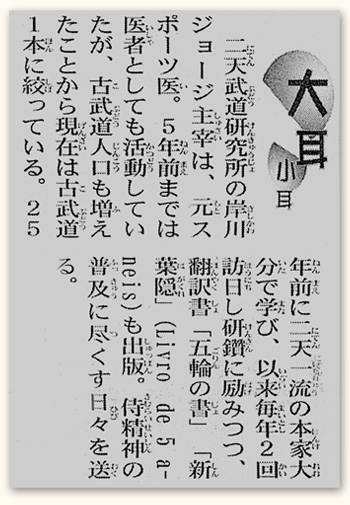 大耳
小耳
二天武道研究所の岸川
ジョージ主宰は、元ス
ポーツ医。5年前までは
医者としても活動してい
たが、古武道人口も増え
たことから現在は古武道
1本に絞っている。25
年前に二天一流の本家大
分で学び、以来毎年2回
訪日し研鑽に励みつつ、
翻訳書「五輪の書」「新
葉隠」(Livro de 5 a-
neis)も出版。侍精神の
普及に尽くす日々を送
る。